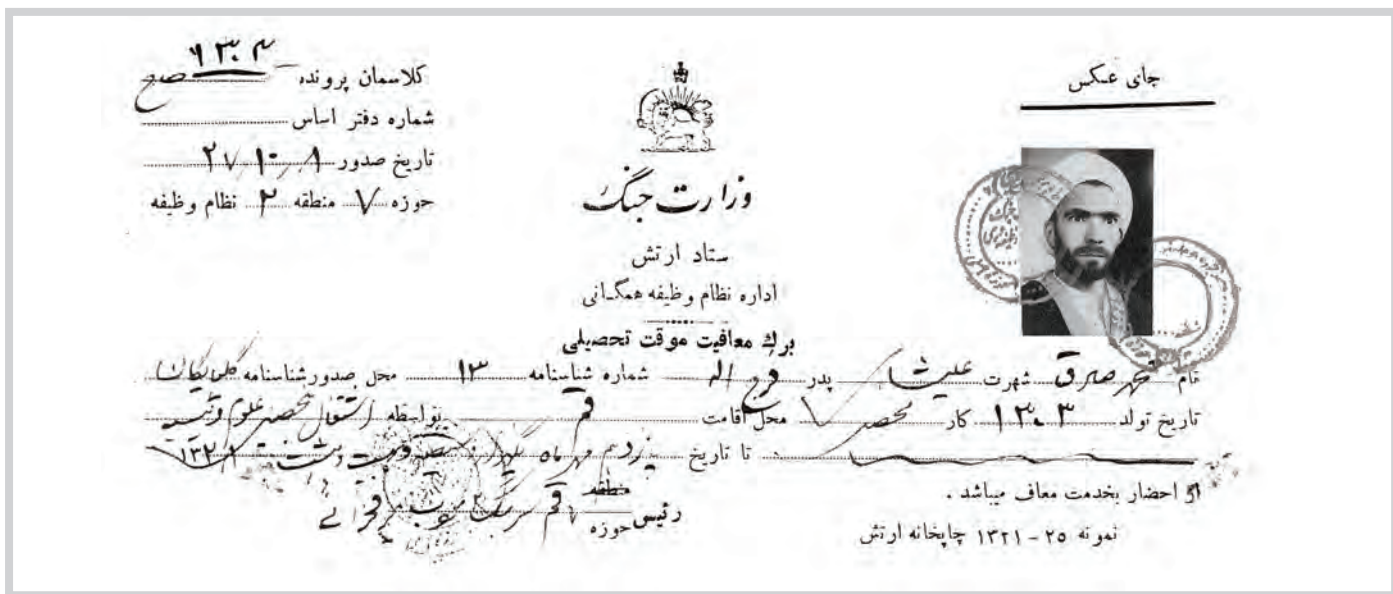 جای عکس
وزارت جنگ
ستاد ارتش
اداره نظام وظیفه همگانی
برگ معافیت موقت تحصیلی
کلاسمان پرونده ۶۳۰۳
شماره دفتر اساس
تاریخ صدور ۲۷/۱۰/۸
حوزه ۷ منطقه ۲ نظام وظیفه
نام محمد صادق شهرت پدر فرج اله شماره شناسنامه ۱۳ محل صدور شناسنامه گلپایگان
تاریخ تولد ۱۳۰۳ کار محصل محل اقامت قم بواسطه اشتغال بتحصیل علوم دینیه
تا تاریخ مهر ماه یکهزار و سیصد و بیست و هشت
از احضار بخدمت معاف میباشد .
رئیس منطقه حوزه ۷ قم سرگرد
نمونه ۲۵ - ۱۳۲۱ چاپخانه ارتش